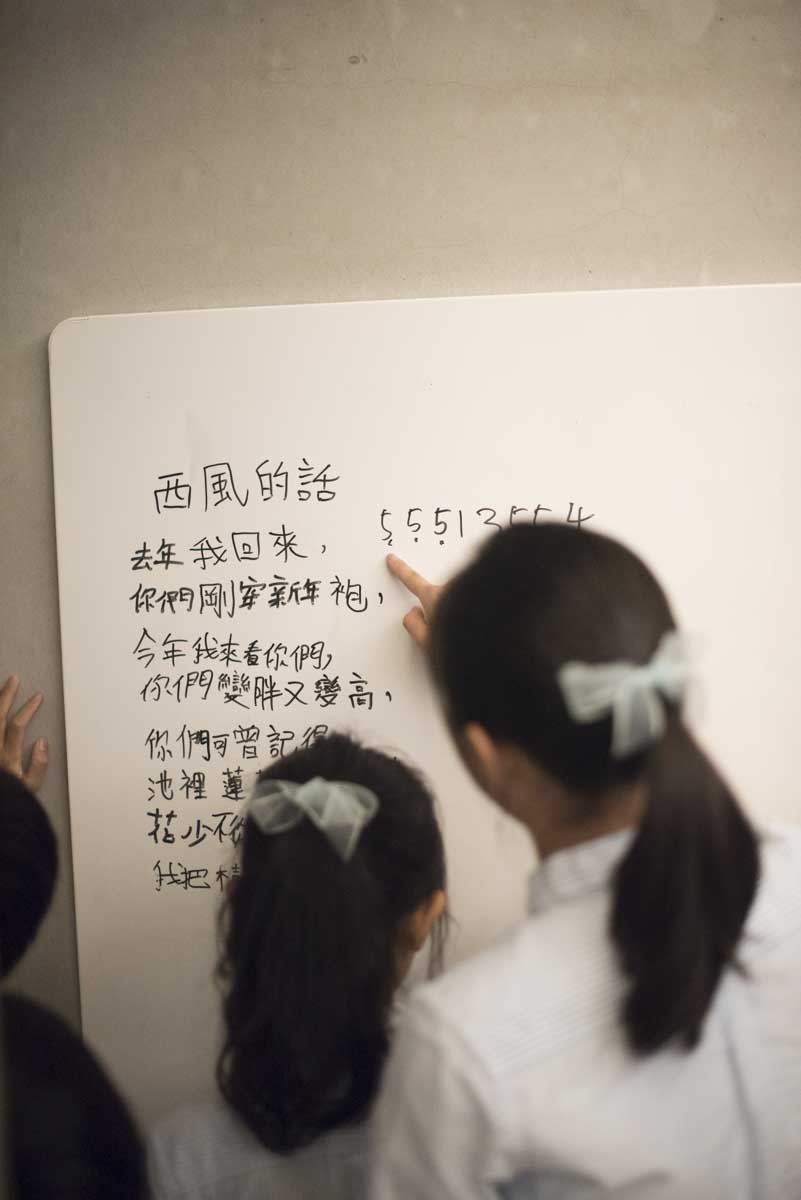 西風的話
去年我回來，
5 5 5 1 3 5 5 4
你們剛穿新年袍，
今年我來看你們，
你們變胖又變高，
你們可曾記得
池裡蓮
花少不
我把